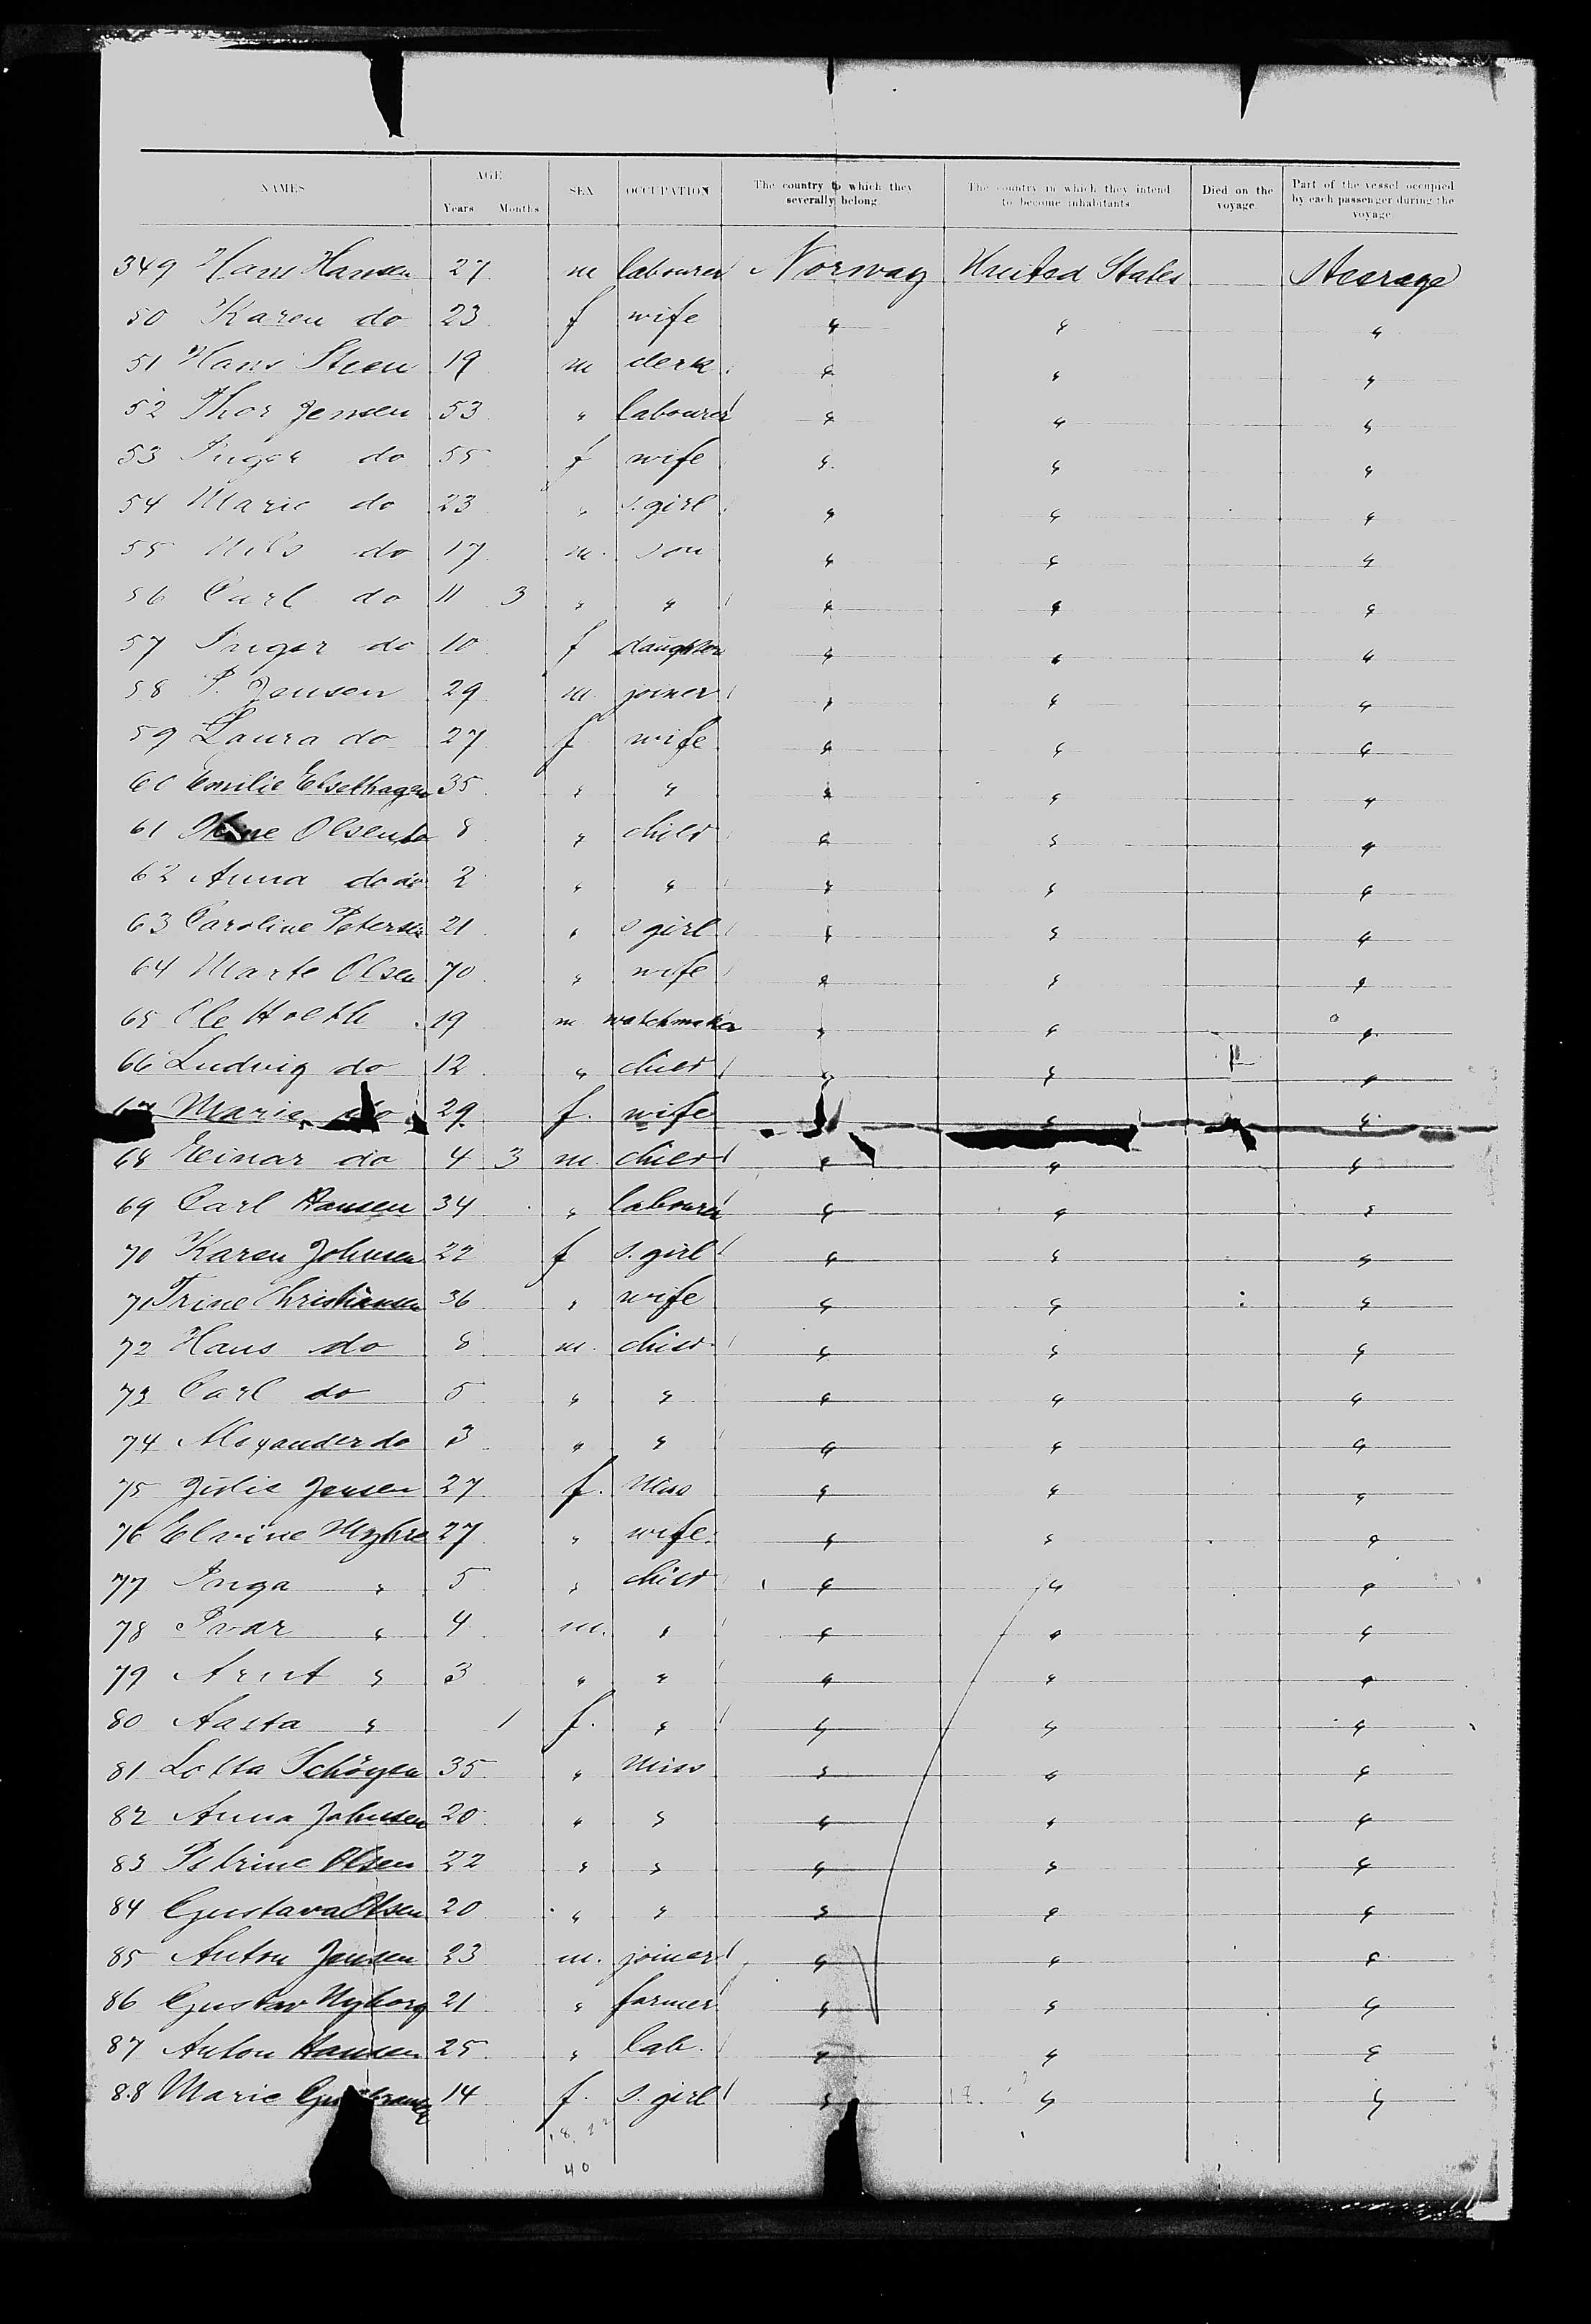 NAMES AGE Years Months SEX OCCUPATION The country to which they severally belong. The country in which they intend to become inhabitants. Died on the voyage. Part of the vessel occupied by each passenger during the voyage.
349 Hans Hansen 27 m labourer Norway United States Steerage
50 Karen do 23 f wife " " "
51 Hans Steen 19 m clerk " " "
52 Thor Jensen 53 " labourer " " "
53 Inger do 55 f wife " " "
54 Marie do 23 " s. girl " " "
55 Nils do 17 m. son " " "
56 Carl do 11 3 " " " " "
57 Inger do 10 f daughter " " "
58 P. Jensen 29 m joiner " " "
59 Laura do 27 f wife " " "
60 Emilie Elsethagen 35 " " " " "
61 Olsen do 8 " child " " "
62 Anna do do 2 " " " " "
63 Caroline Petersen 21 " s girl " " "
64 Marte Olsen 70 " wife " " "
65 Ole Holth 19 m watchmaker " " "
66 Ludvig do 12 " child " " "
67 Marie do 29 f. wife " " "
68 Einar do 4 3 m child " " "
69 Carl Hansen 34 " labourer " " "
70 Karen Johnsen 22 f s. girl " " "
71 Trine Christiansen 36 " wife " " "
72 Hans do 8 m. child " " "
73 Carl do 5 " " " " "
74 Alexander do 3 " " " " "
75 Julie Jensen 27 f. Miss " " "
76 Elvine Myhre 27 " wife " " "
77 Inga " 5 " child " " "
78 Ivar " 4 m. " " " "
79 Arnt " 3 " " " " "
80 Aasta " 1 f. " " " "
81 Lotta Schöyen 35 " Miss " " "
82 Anna Johnsen 20 " " " " "
83 Petrine Olsen 22 " " " " "
84 Gustava Olsen 20 " " " " "
85 Anton Jensen 23 m. joiner " " "
86 Gustav Nyborg 21 " farmer " " "
87 Anton Hansen 25 " lab. " " "
88 Marie 14 f. s. girl " " "
40